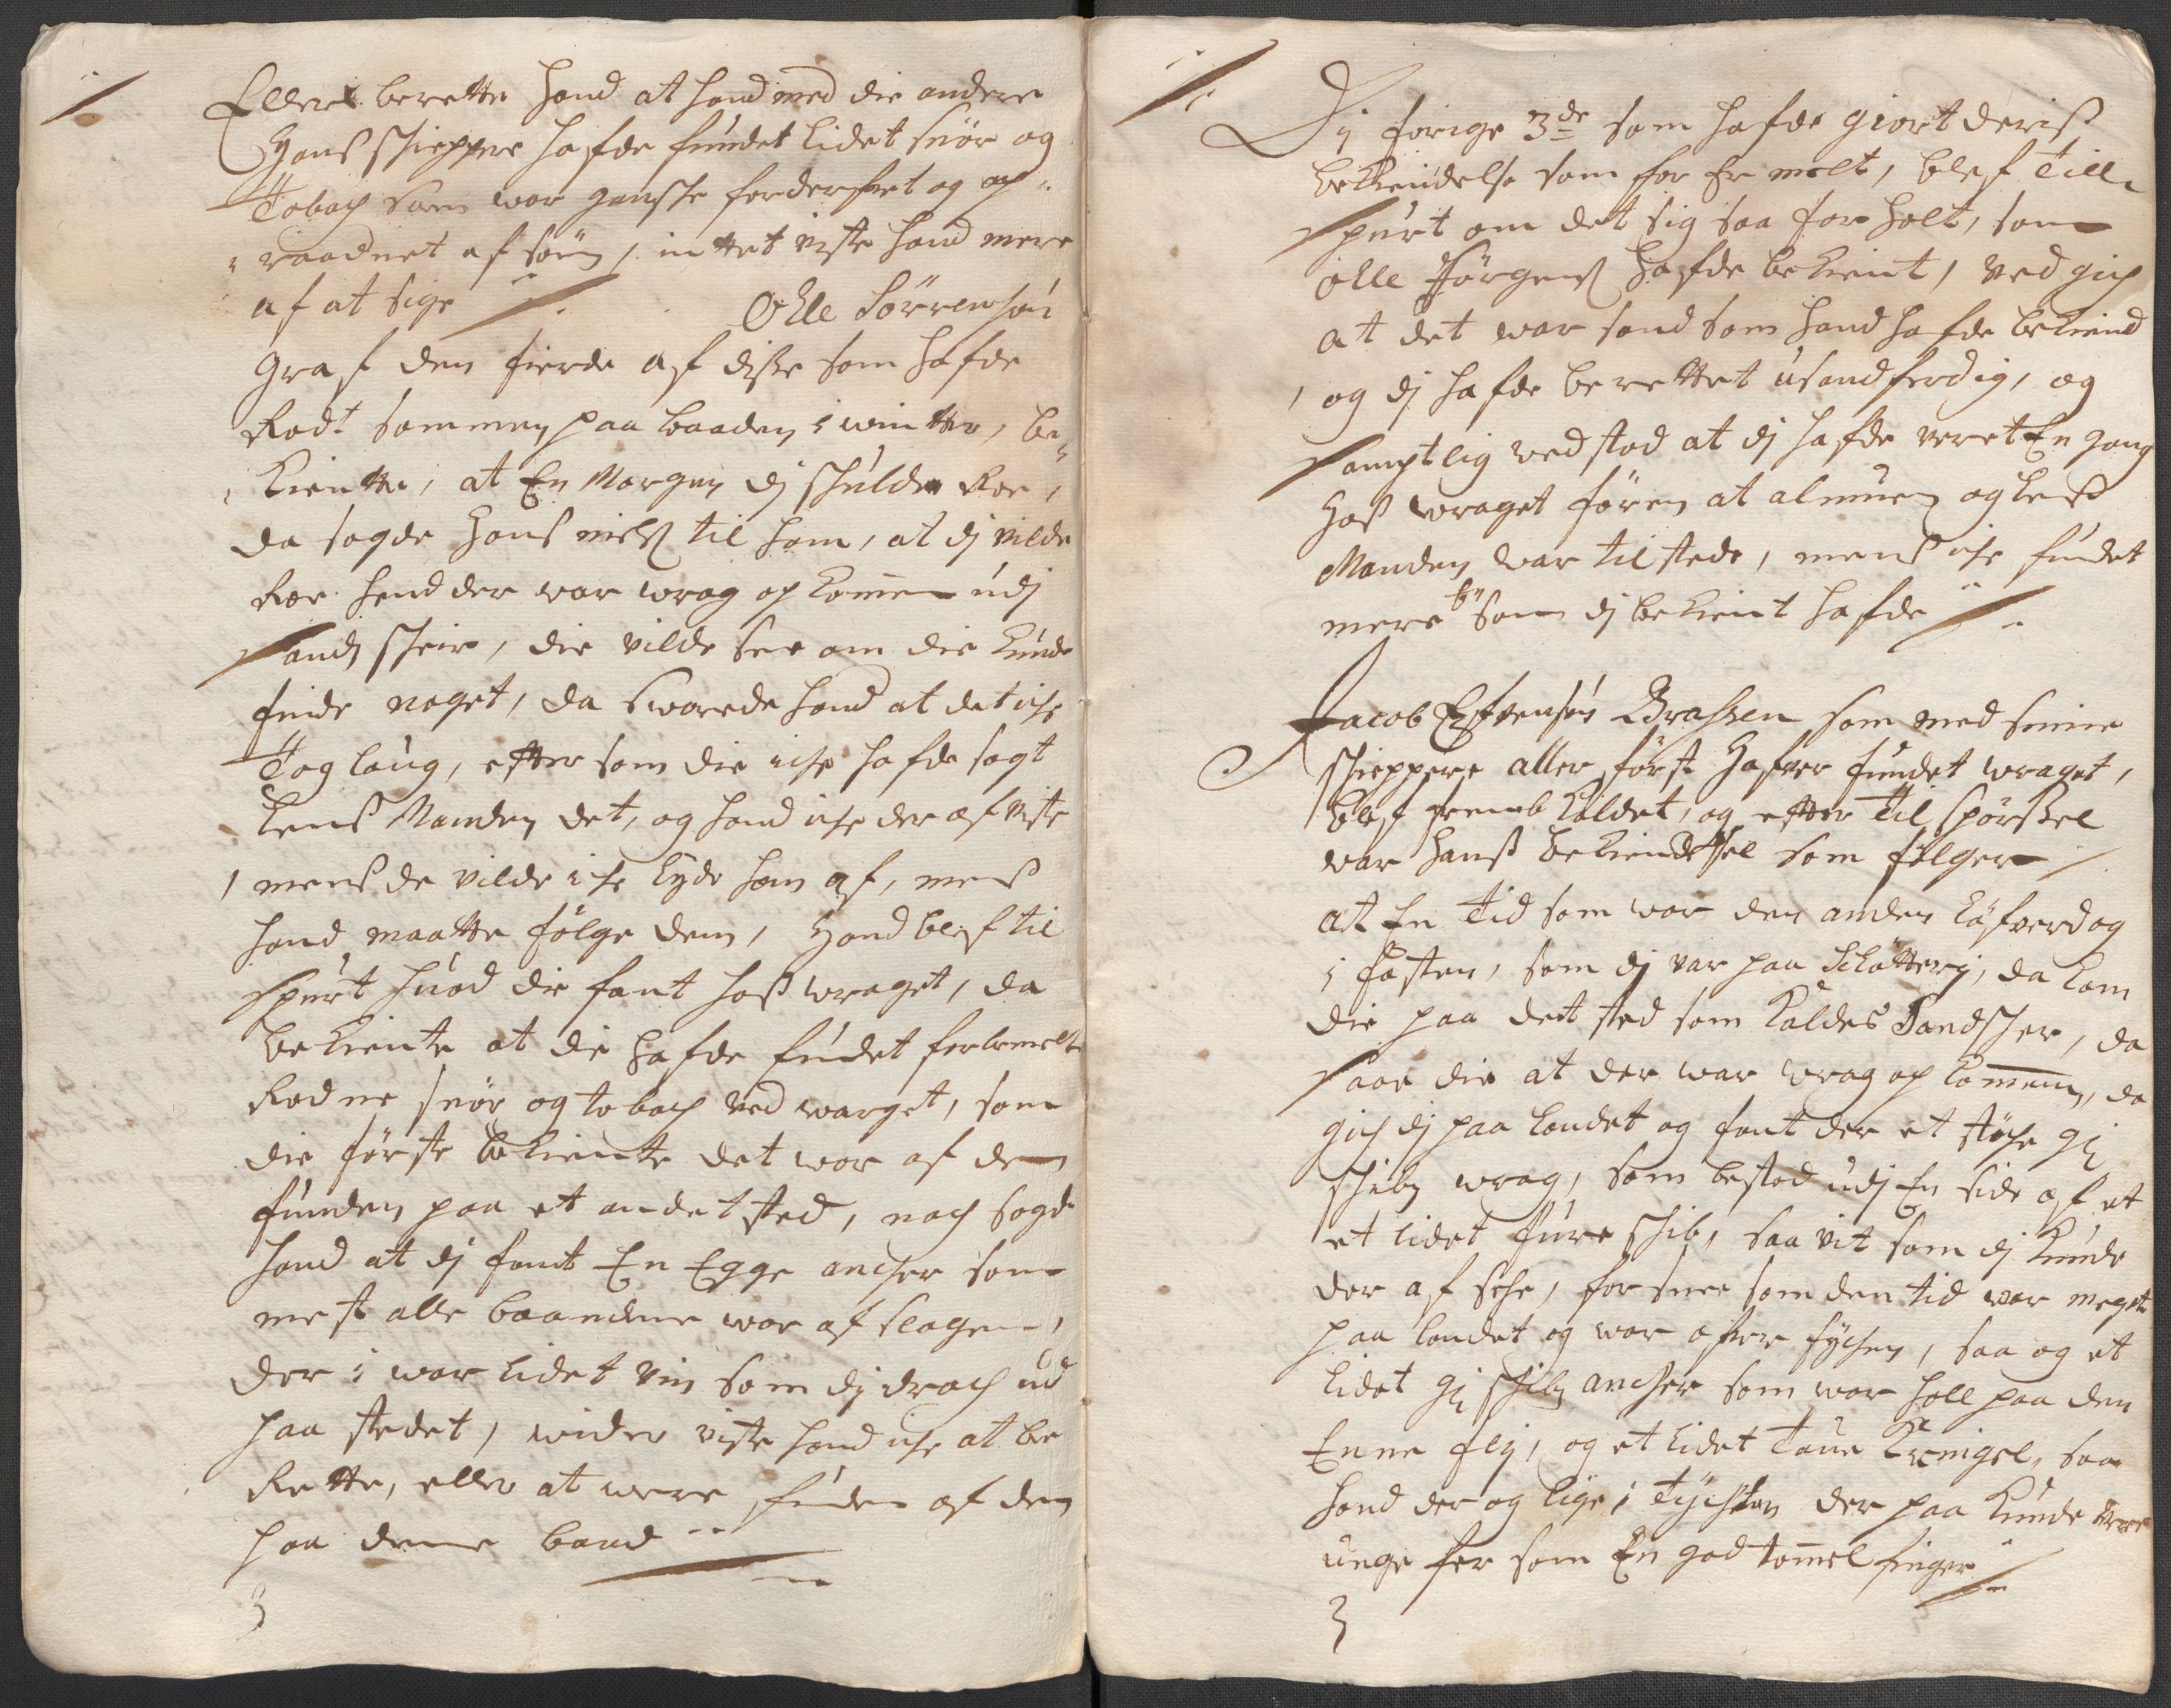 Ellers berette hand at hand med die andere
Hans schieppere hafde fundet lidet snör og
Tobach som war gansche forderfvet og op
raadnet af söen, inttet viste hand mere
af at sige Olle Sörrensön
Graf den fierde af disse som hafde
Rodt sammen paa baaden i wintter, be
kientte, at En Morgen dj schulde Roe,
da sagde Hans nielß til ham, at dj vilde
Roe hend der war wrag op komen udj
Sandschier, die vilde see om die kunde
finde noget, da swarede hand at det iche
Tog laug, efftersom die iche hafde sagt
Lens Manden det, og hand iche der af viste
mens de vilde iche lyde ham af, mens
hand maatte fölge dem, Hand blef til
spurt huad die fant hoß wraget, da
bekiente at die hafde fundet forbemelte
Rodne snör og tobach ved warget, som
die förste bekiente det war af dem
funden paa et andet sted, noch sagde
hand at dj fant En Egge ancher som
mest alle baandene war af slagen,
der i war lidet vin som dj drach ud
paa stedet, wider viste hand iche at be
Rette, eller at were funden af dem
paa denne baad
3
Dj forige 3de som hafde giort deriß
bekiendelse som for er melt, blef till
spurt om det sig saa forholt, som
olle Jörgenß hafde bekient, ved gich
at det war sand som hand hafde bekiend
og dj hafde berettet usandferdig, og
samptlig wedstod at dj hafde veret En gang
Hoß wraget fören at almuen og Lenß
Manden war tilstede, menß iche fundet
mere som dj bekient hafde
Jacob Efvensön Brassen som med sinne
schieppere aller först Hafver fundet wraget,
blef fremb kaldet, og efter til spörssel
war hanß bekiendelsse som fölger
at En Tid som war den anden Löfverdag
i fasten, som dj var paa Schötterj, da kam
die paa det sted som kaldes Sandscher, da
saae die at der war wrag op kommen, da
gich dj paa landet og fant der et stöche Gl
schibs wrag, som bestod udj En side af et
et lidet fure schib, saa vit som dj kunde
der af sehe, for snee som den tid war meget
paa landet og war ofver fychen, saa og et
lidet Gl schibs ancher som war holl paa den
Enne flij, og et lidet Taue saa
hand der og lige, Tychten der paa kunde were
unge fer som En god tommel finger
3